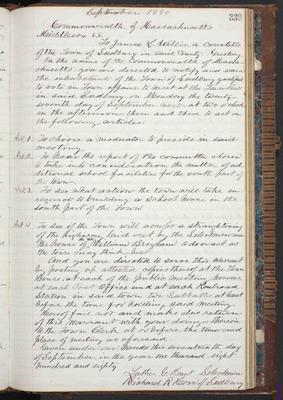 September 1880
233
Commonwealth of Massachusetts
Middlesex ss.
To James E. Willis, a Constable
of the Town of Sudbury in said County Greeting
In the name of the Commonwealth of Massa-
chusetts you are directed to notify and warn
the inhabitants of the Town of Sudbury qualified
to vote in Town affairs to meet at the Town Hall
in said Sudbury on Monday the twenty
seventh day of September next at two o'clock
in the afternoon then and there to act on
the following articles.
Art. 1. To choose a moderator to preside in said
meeting.
Art. 2. To hear the report of the committee chosen
to take into consideration the matter of ad-
ditional school facilities for the south part of
the town.
Art. 3. To see what action the town will take in
regard to building a School House in the
south part of the Town
Art. 4. To see if the Town will accept a straightening
of the highway laid out by the Selectmen near
the house of William Brigham & do or act as
the town may think best.
And you are directed to serve this Warrant
by posting up attested copies thereof at the Town
House, at each of the public meeting houses
at each Post Office and at each Railroad
Station in said town two Sabbaths at least
before the time for holding said meeting.
Hereof fail not and make due return
of this Warrant with your doings thereon
to the Town Clerk at or before the time and
place of meeting as aforesaid.
Given under our hands this seventeenth day
of September in the year one thousand eight
hundred and eighty
Luther G. Hunt Selectmen
Richard R. Horr of Sudbury